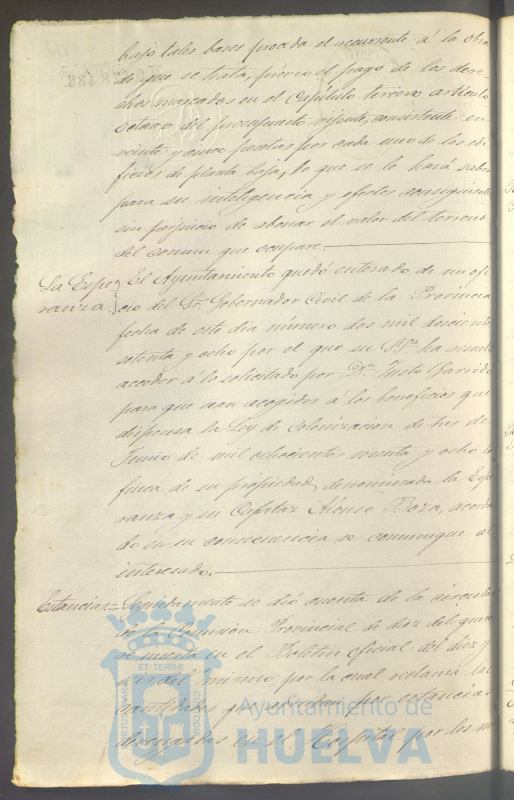 bajo tales bases proceda el recurrente á la obra
de que se trata, prévio el pago de los dere-
chos marcados en el Capítulo tercero artículo
octavo del presupuesto vigente, consistente en
veinte y cinco pesetas por cada uno de los edi-
ficios de planta baja, lo que se le hará saber
para su inteligencia y efectos consiguientes
sin perjuicio de abonar el valor del terreno
del comun que ocupare.
La Espe- El Ayuntamiento quedó enterado de un ofi-
ranza. cio del Sr. Gobernador Civil de la Provincia
fecha de este dia número dos mil doscientos
setenta y ocho por el que su Sª. ha resuelto
acceder á lo solicitado por Dn. Justo Garrido
para que sean acogidos á los beneficios que
dispensa la Ley de Colonizacion de tres de
Junio de mil ochocientos sesenta y ocho la
finca de su propiedad, denominada la Espe-
ranza y su Capataz Alonso Boza, acorda-
do en su consecuencia se comunique al
interesado.
Estancias= Seguidamente se dió cuenta de la circular
de la Comision Provincial de diez del que
se inserta en el Boletin oficial del diez y
del mismo, por la cual reclama las
cantidades que adeudan por estancias
devengadas en el Hospital por los
ET TERRÆ
Ayuntamiento de
HUELVA